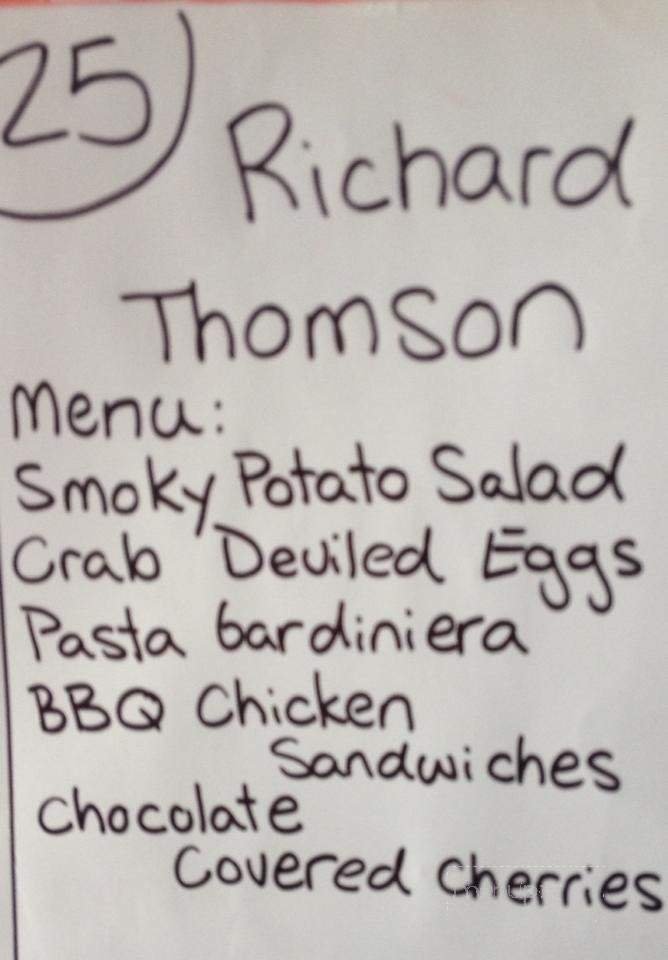 25
Richard
Thomson
Menu:
Smoky Potato Salad
Crab Deviled Eggs
Pasta bardiniera
BBQ Chicken
Sandwiches
Chocolate
Covered Cherries